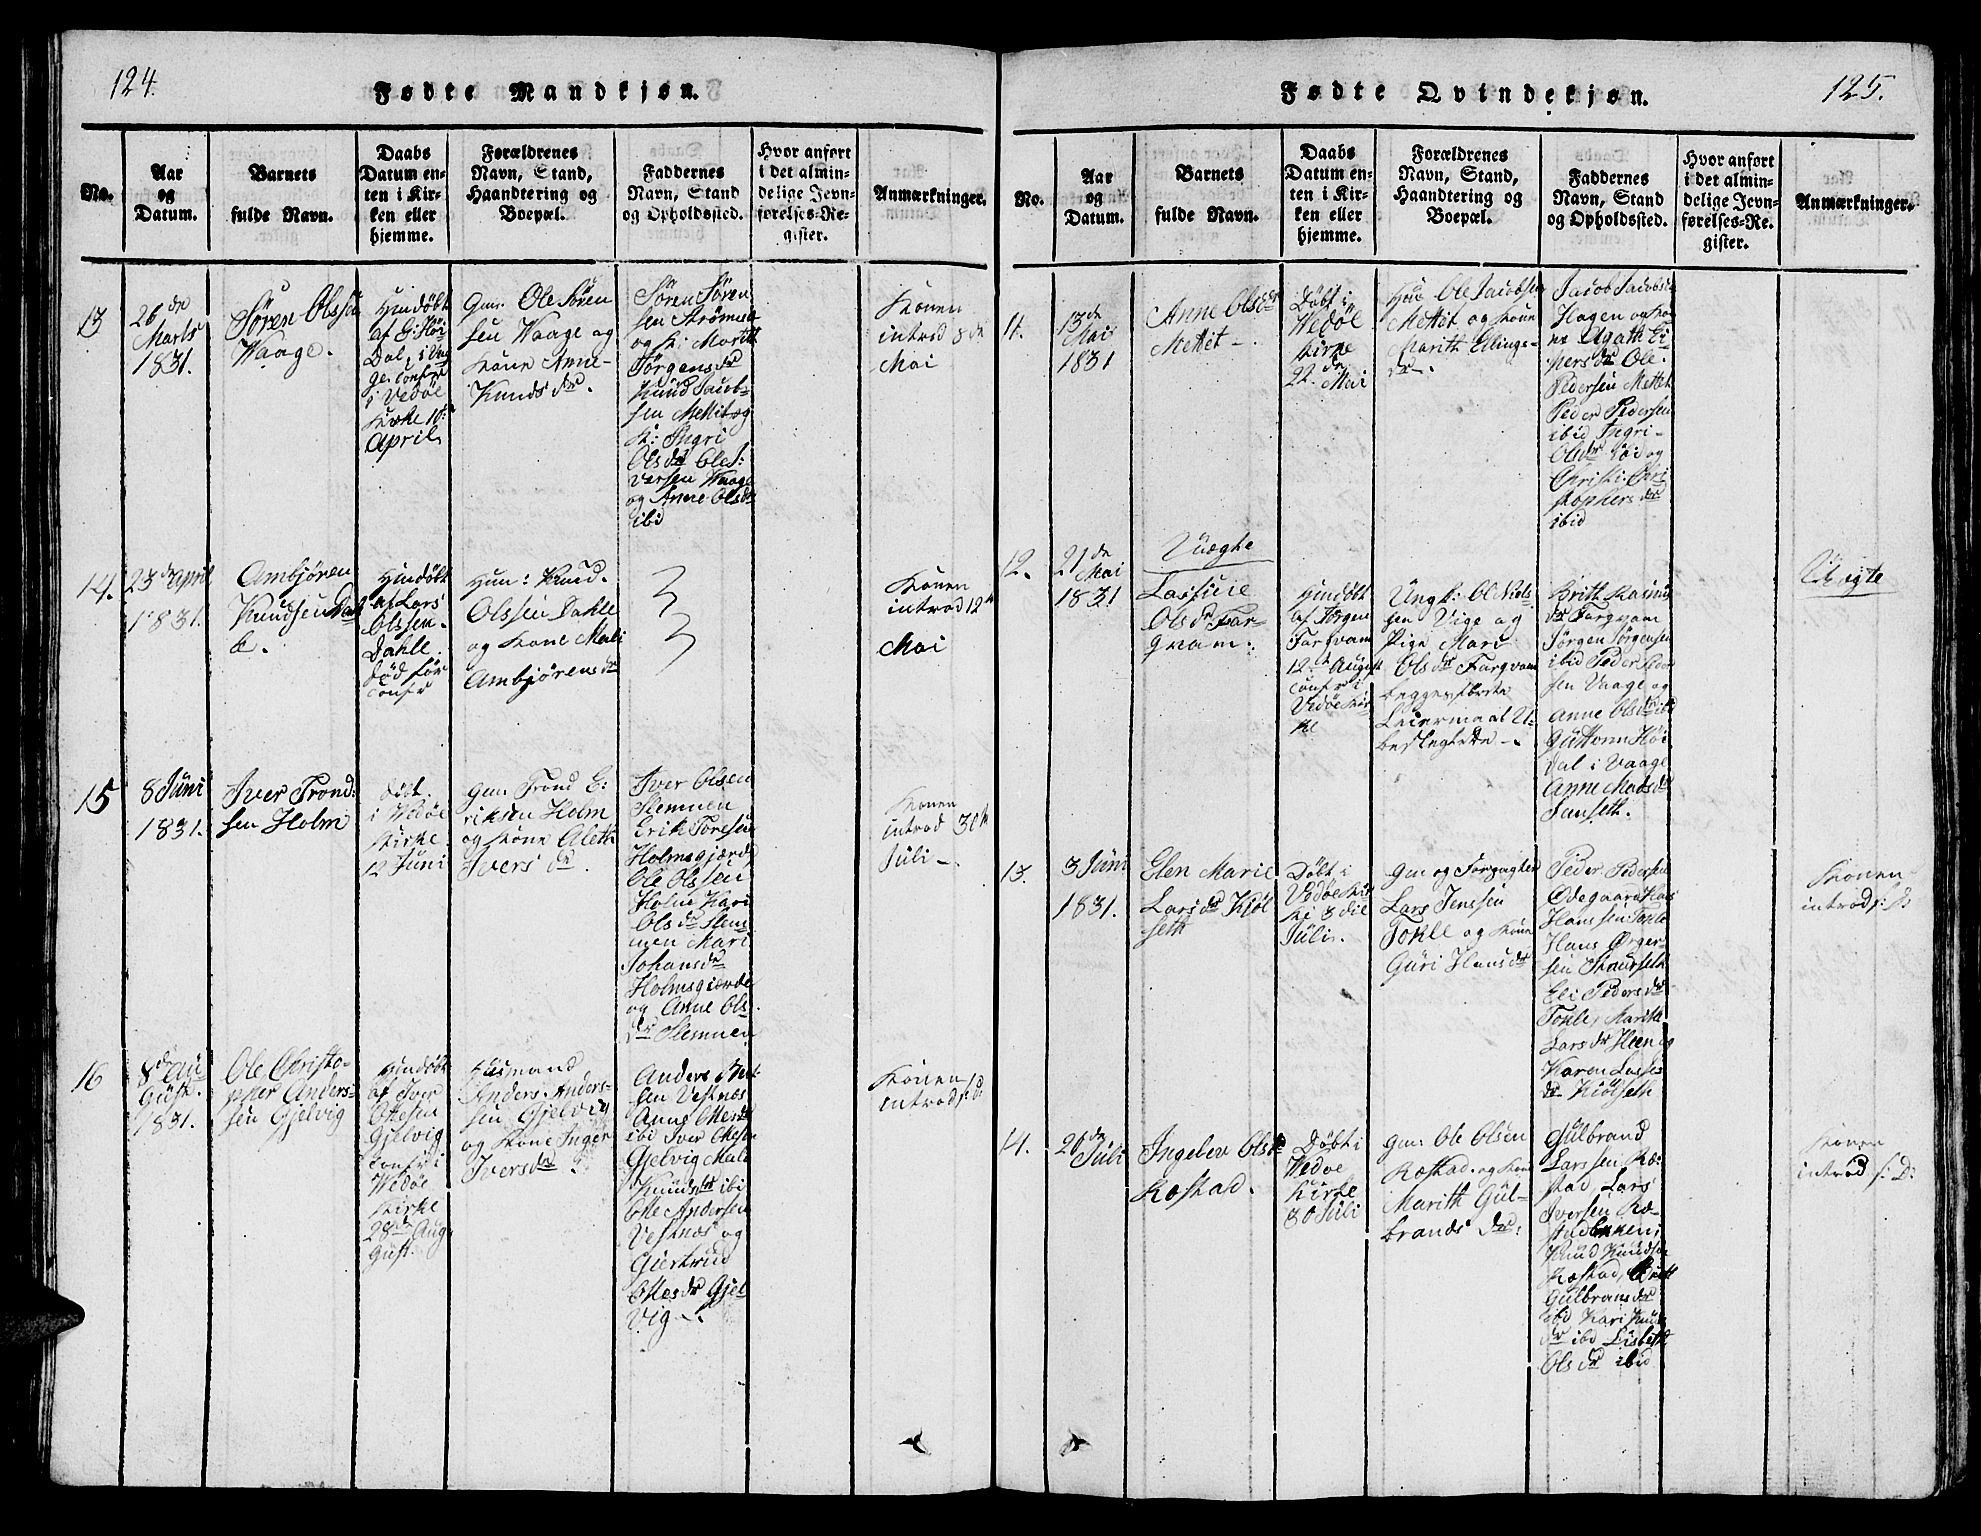 124.
Fødte Mandkjøn.
No.
Aar
og
Datum.
Barnets
fulde Navn.
Daabs
Datum en-
ten i Kir-
ken eller
hjemme.
Forældrenes
Navn, Stand,
Haandtering og
Boepæl.
Faddernes
Navn, Stand
og Opholdssted.
Hvor anført
i det almin-
delige Jevn-
førelses-Re-
gister.
Anmærkninger.
13
26de
Marts
1831.
Søren Olssen
Waage.
Hiemdøbt
af G. Høi
Dal, i Vaa
ge. Confr
i Vedøe
Kirke 10.
April
Gm. Ole Sören
sen Waage og
Kone Anne
Knuds dr.
Søren Søren
sen Strømme
og K: Marith
Jörgensdr
Knud Jacob-
sen Mettet og
K: Ingri
Olsdr Ole I:
versen Waage
og Anne Olsdr
ibid
Konen
introd 8de
Mai
14.
23de April
1831.
Ambjören
Knudsen Dah
le.
Hiemdöbt
af Lars
Olssen
Dahle.
død før
Confr
Huu: Knud
Olssen Dahle
og Kone Mali
Ambjörensdr
Konen
introd 12te
Mai
15
8 Juni
1831.
Iver Trond-
sen Holm
Döbt
i Vedøe
Kirke
12 Juni
Gm. Trond E:
riksen Holm
og Kone Aleth
Ivers dr
Iver Olsen
Stemnen
Erik Toresen
Holmsgjærde
Ole Olssen
Holm Kari
Ols dr Stem
nen Mari
Johans dr
Holmsgiærde
og Anne Ols
dr Stemnen
Konen
introd 30te
Juli
16
8de Au
gust.
1831.
Ole Christo-
pher Anders-
sen Gjelvig
Hiemdøbt
af Iver
Ottesen
Gjelvig
Confr i
Wedøe
Kirke
28de Au
gust.
Huusmand
Anders Anders-
sen Gjelvig
og Kone Inger
Iversdr
Anders
sen Vestnæs
Anne
ibi Iver
Gjelvig Mali
Knudsdr ibi
Otte Andersen
Vestnæs og
Giertrud
Ottesdr Gjel
vig
Konen
introd s: D:
125.
Fødte Qvindekjøn.
No.
Aar
og
Datum.
Barnets
fulde Navn.
Daabs
Datum en-
ten i Kir-
ken eller
hjemme.
Forældrenes
Navn, Stand,
Haandtering og
Boepæl.
Faddernes
Navn, Stand
og Opholdssted.
Hvor anført
i det almin-
delige Jevn-
førelses-Re-
gister.
Anmærkninger.
11.
13de
Mai
1831
Anne Olsdr
Mettet
Døbt i
Wedøe
Kirke
22de Mai
Huu Ole Jacobsen
Mettet og Kone
Marith Ellings-
dr.
Jacob Jacobsen
Hagen og Ko
ne Agath Ei
nersdr Ole
Pedersen Mettet
Peder Pedersen
ibid Ingri
Olsdr ibi og
Christi Chri
stophersdr
ibid
12.
21de
Mai
1831
Uægte
Olsdr Far-
qvam:
Hiemdöbt
af Jörgen
Fargvam
12te August
Confr i
Vedøe Kir
ke
Ungk: Ole Niels-
sen Vige og
Pige Mari
Olsdr Fargvam
begges første
Leiermaal U-
beslegtede
Britt Rasmus
dr Fargvam
Jørgen Jørgensen
ibid Peder Peder
sen Vaage og
Anne Olsdr ibi
Guttorm Høi
dal i Vaage
Anne Madsdr
Sanseth.
Uægte
13.
3 Juni
1831.
Elen Marie
Larsdr Kjøl
seth
Döbt i
Vedøe Kir
ke 3die
Juli.
Gm og Forpagter
Lars Jenssen
Tokle og Kone
Guri Hansdr
Peder Pedersen
Ødegaard Hans
Hanssen Tokle
Hans Ørger-
sen Staurseth
Eli Pedersdr
Tokle, Marith
Larsdr Heen og
Karen Lasses
dr Kiölseth
Konen
introd s: D
14.
26de
Juli
Ingebor Olsdr
Ræstad.
Døbt i
Wedøe
Kirke
30 Juli
Gm: Ole Olsen
Ræstad og Kone
Marith Gul-
brands dr:
Gulbrand
Larssen Ræ-
stad Lars
Iversen Ræ-
stadbakken,
Knud Knudsen
Ræstad, Britt
Gulbransdr
ibid Kari Knuds
dr ibid Lisbeth
Ols dr ibid
Konen
introd s: D: